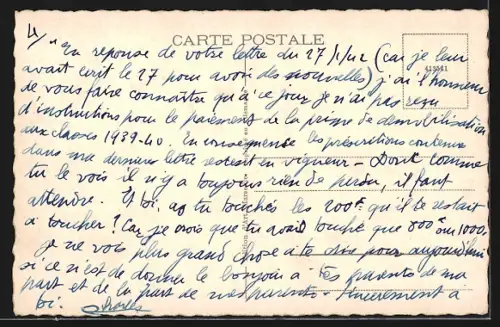 4/
CARTE POSTALE
"En réponse de votre lettre du 27/1/42 (car je leur
avait écrit le 27 pour avoir des nouvelles) j'ai l'honneur
de vous faire connaître qu'à ce jour je n'ai pas reçu
d'instructions pour le paiement de la prime de démobilisation
aux classes 1939-40. En conséquence les prescriptions contenues
dans ma dernière lettre restent en vigueur - Donc comme
tu le vois il n'y a toujours rien de perdu, il faut
attendre. Et toi, as tu touchés les 200f qu'il te restait
à toucher? Car je crois que tu avais touché que 800f ou 1000f
je ne vois plus grand chose à te dire pour aujourd'hui
si ce n'est de donner le bonjour à tes parents de ma
part et de la part de nos parents - Sincèrement à
toi.